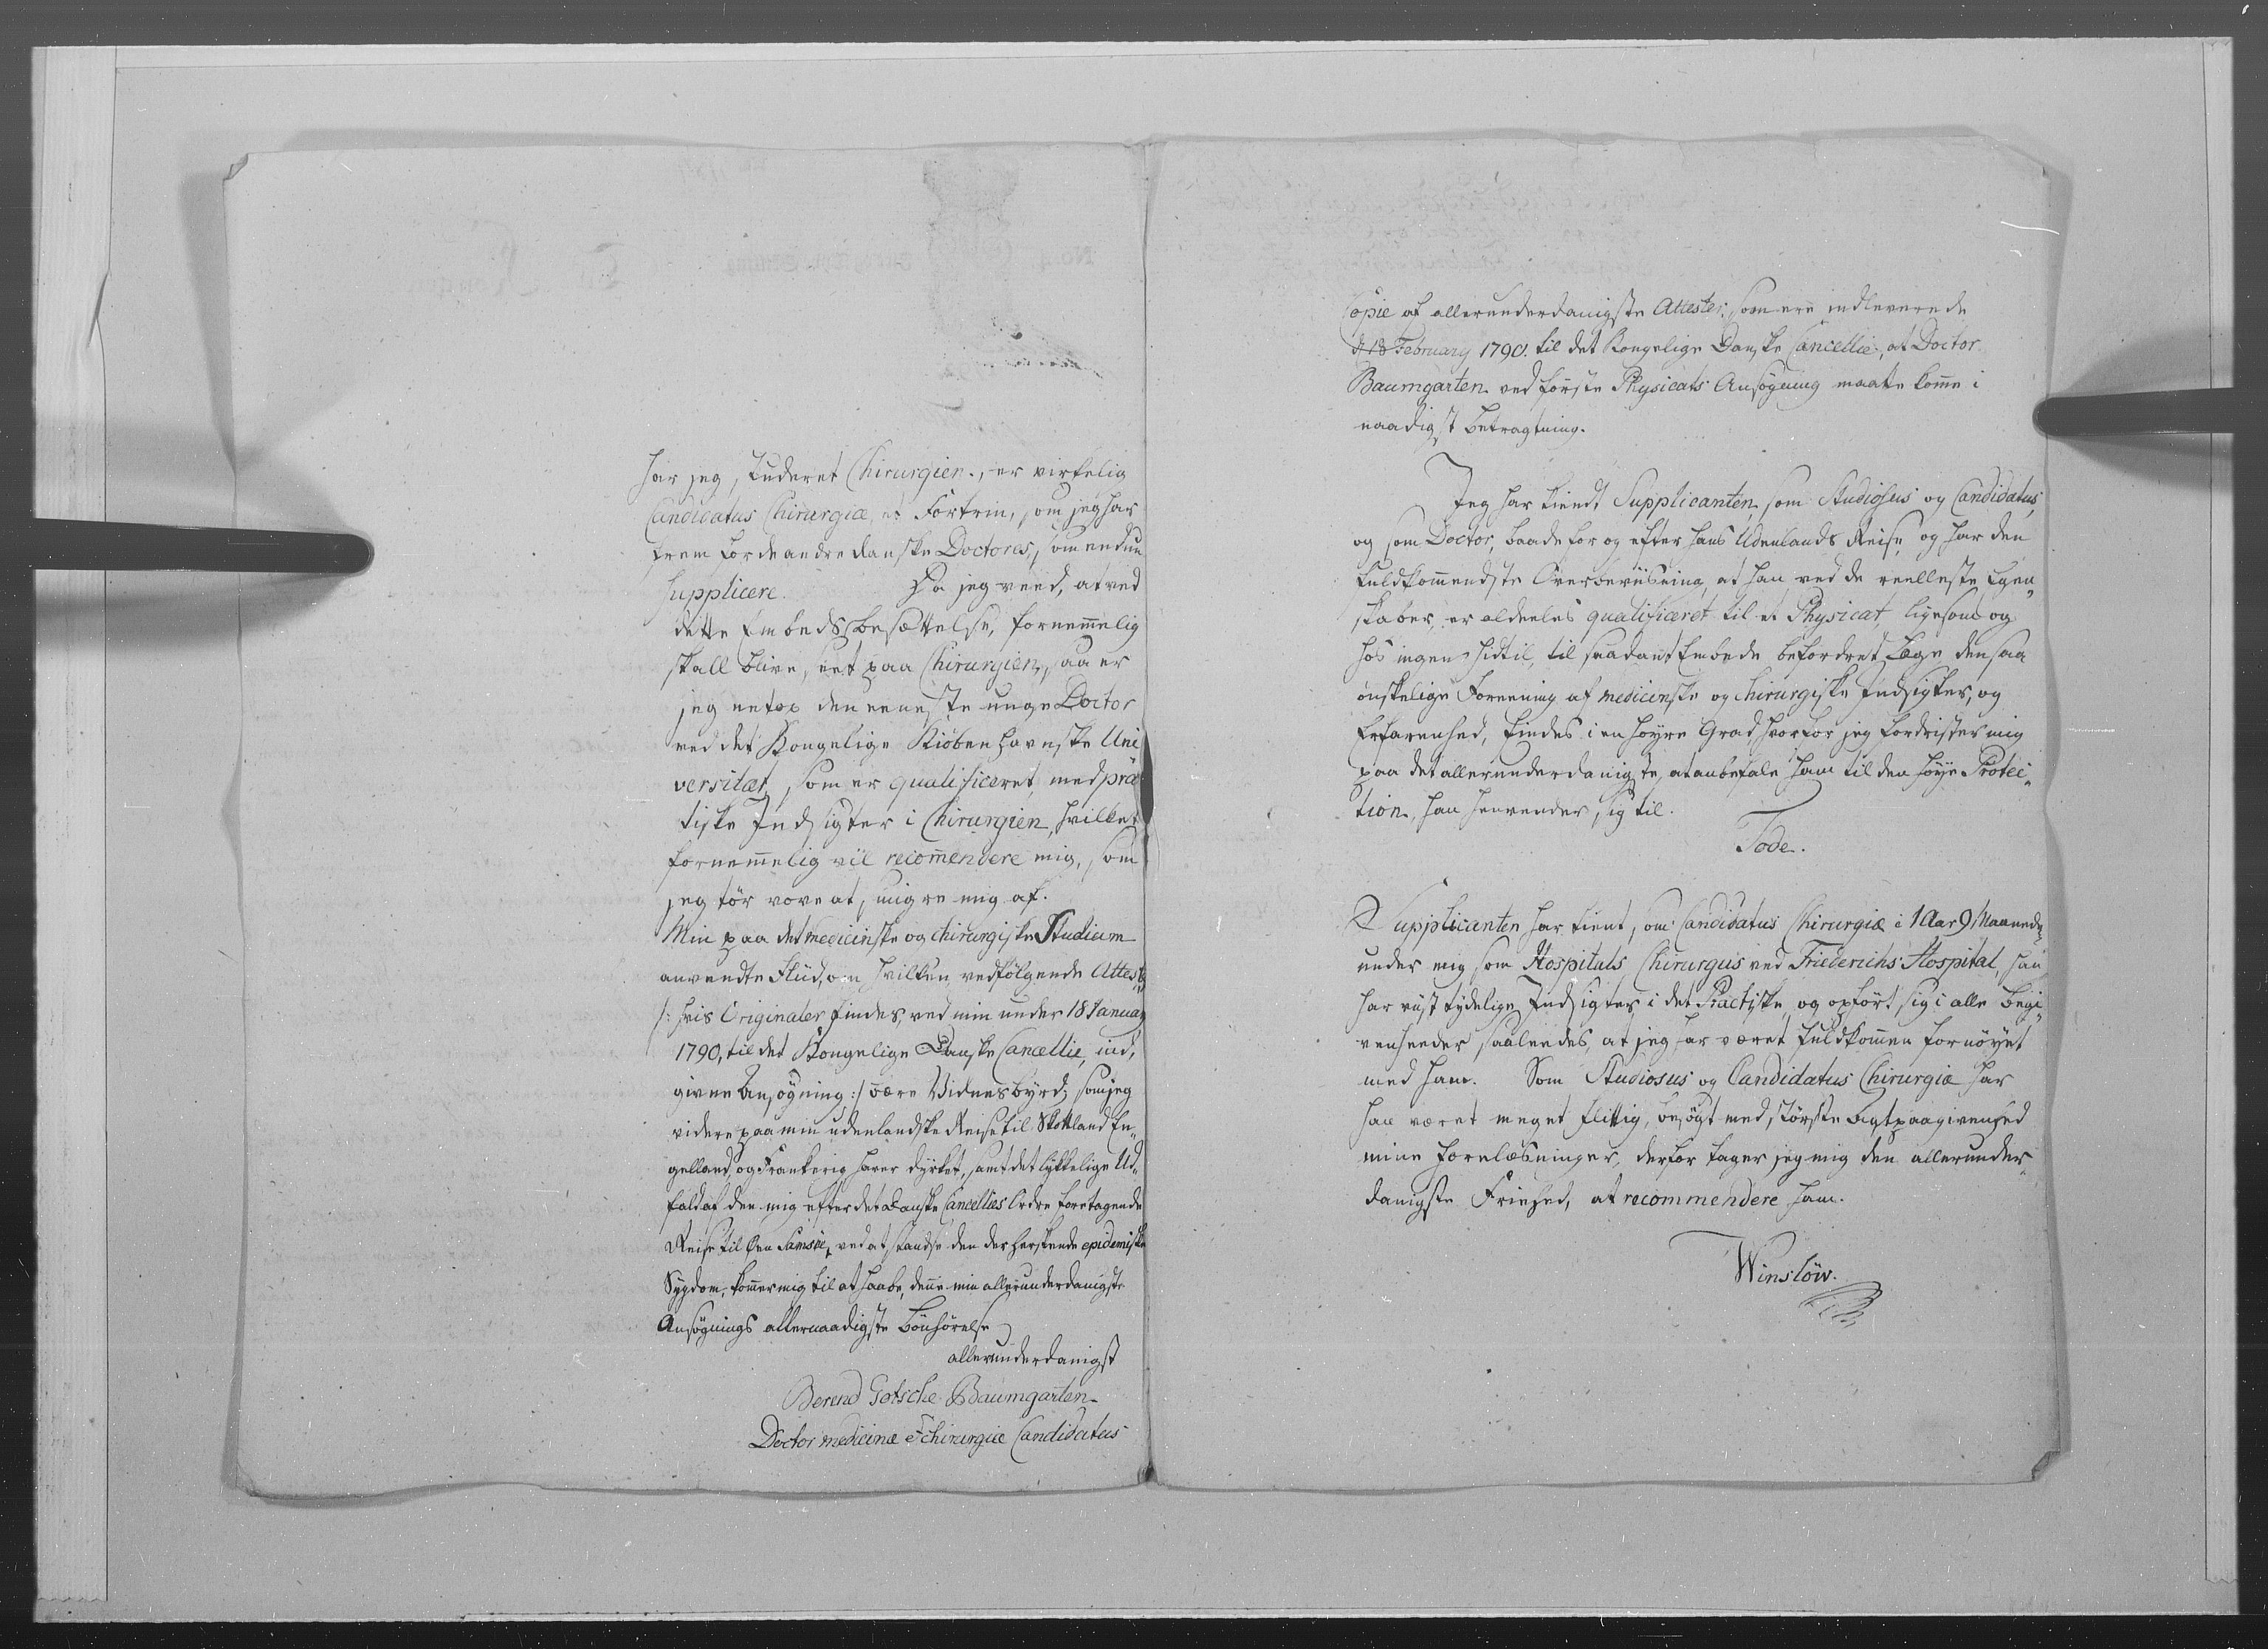 har jeg studeret Chirurgien, er virkelig
Candidatus Chirurgiæ, et Fortrin, som jeg har
frem for de andre danske Doctores, som endnu
supplicere. Da jeg veed, at ved
dette Embeds besættelse, fornemmelig
skall blive seet paa Chirurgien, saa er
jeg netop den eeneste unge Doctor
ved det Kongelige Kiøbenhavnske Uni
versitæt, som er qualificeret med prac
tiske Indsigter i Chirurgien, hvilket
fornemmelig vil recommendere mig, som
jeg tør vove at smigre mig af.
Min paa det medicinske og chirurgiske Studium
anvendte Fliid, om hvilken vedfølgende Attester
/: hvis Originaler findes, ved min under 18 January
1790, til det Kongelige Danske Cancellie, ind,
givne Ansøgning :/ være Vidnesbyrd, som jeg
videre paa min udenlandske Reise til Skottland En„
gelland, og Frankerig haver dyrket, samt det lykkelige Ud„
fald af den mig efter det Danske Cancellies Ordre foretagende
Reise til Øen Samsøe, ved at standse den der herskende epidemiske
Sygdom, kommer mig til at haabe, denne min allerunderdanigste
Ansøgnings allernaadigste bønhørelse
allerunderdanigst
Berend Gotsche Baumgarten
Doctor medicinæ & chirurgiæ Candidatus
Copie af allerunderdanigste Attester, som ere indleverede
d 18 February 1790. til det Kongelige Danske Cancellie, at Doctor
Baumgarten ved første Physicats Ansøgning maatte komme i
naadigst betragtning.
Jeg har kiendt Supplicanten som Studiosus og Candidatus,
og som Doctor, baade for og efter hans Udenlands Reise, og har den
fuldkommendste Overbeviisning, at han ved de reelleste Egen„
skaber, er aldeeles qualificeret til et Physicat, ligesom og
hos ingen hidtil, til saadant Embede befordret Læge den saa
ønskelige Foreening af medicinske og chirurgiske Indsigter, og
Erfarenhed, findes i en høyre Grad, hvorfor jeg fordrister mig
paa det allerunderdanigste, at anbefale ham til den høye Protec„
tion, han henvender sig til.
Tode.
Supplicanten har tient som Candidatus Chirurgiæ i 1 Aar 9 Maaneder
under mig som Hospitals Chirurgus ved Friederichs Hospital, han
har viist tydelige Indsigter i det Practiske, og opført sig i alle begi„
venheeder saaleedes, at jeg har været fuldkommen fornøyet
med ham. Som Studiosus og Candidatus Chirurgiæ har
han været meget flittig, besøgt med største Agtpaagivenhed
mine Forelæsninger, derfor tager jeg mig den allerunder„
danigste Friehed, at recommendere ham.
Winsløw.